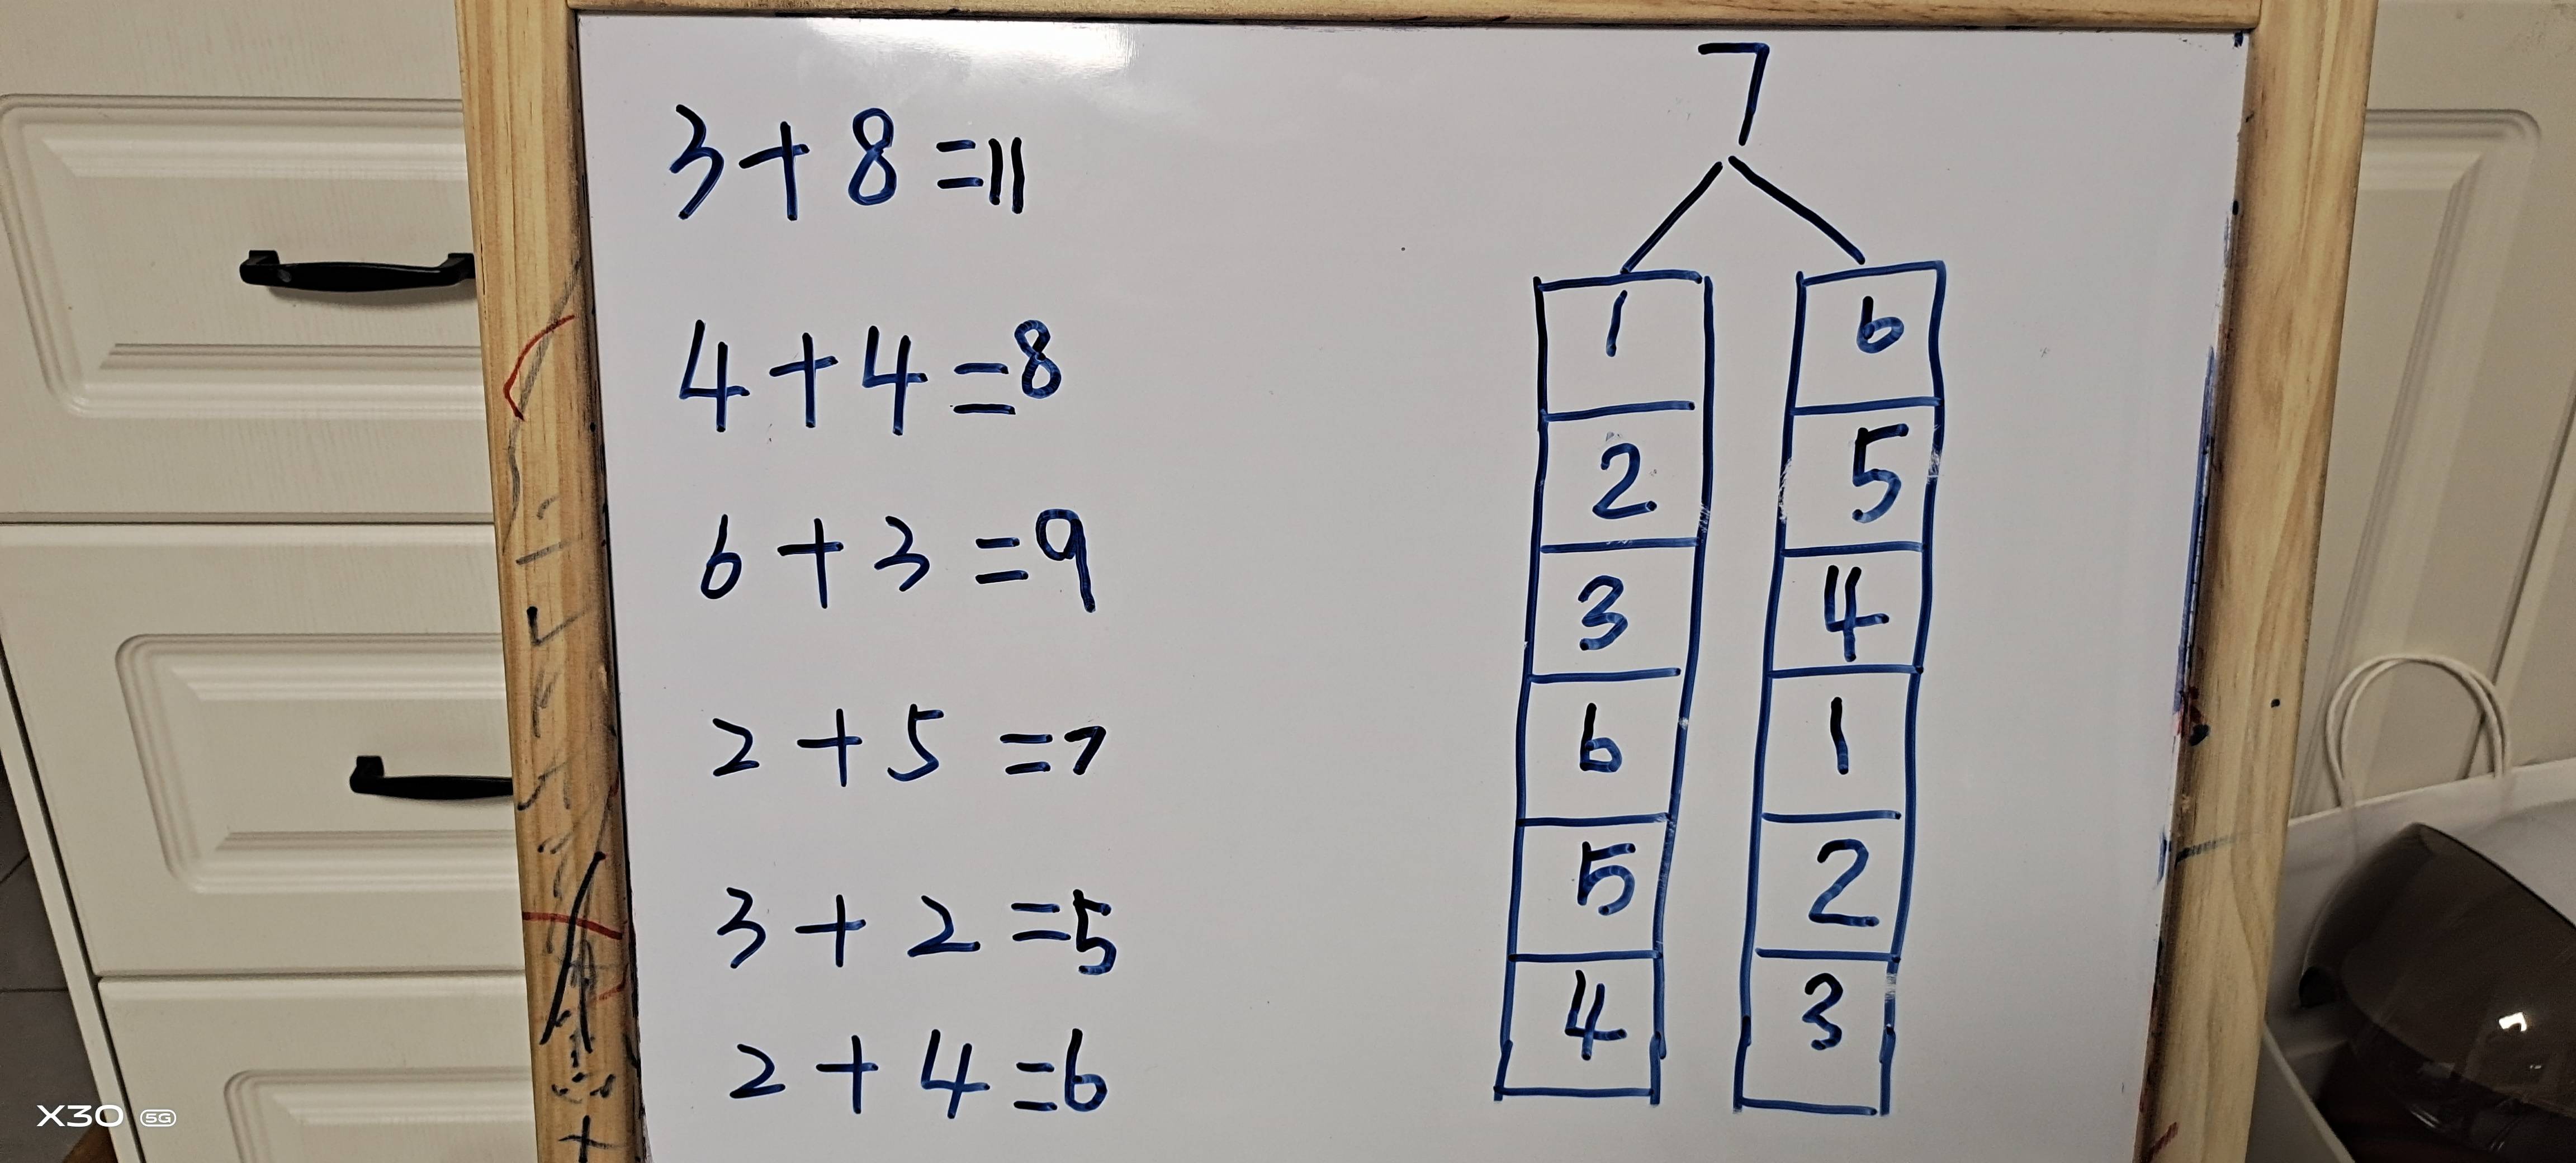 3+8=11
4+4=8
6+3=9
2+5=7
3+2=5
2+4=6
7
1 6
2 5
3 4
6 1
5 2
4 3
X30 5G